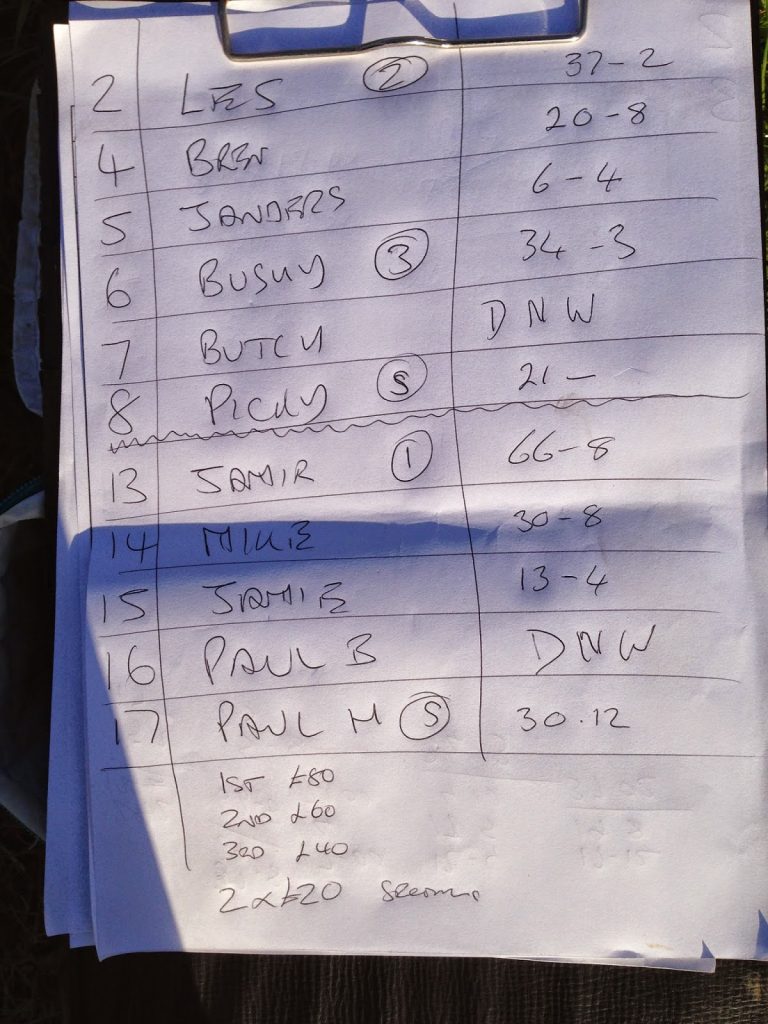 2 LES ② 37-2
4 BREN 20-8
5 SANDERS 6-4
6 BUSHY ③ 34-3
7 BUTCH DNW
8 PICKY Ⓢ 21-
13 SAMIR ① 66-8
14 MIKE 30-8
15 JAMIE 13-4
16 PAUL B DNW
17 PAUL M Ⓢ 30.12
1ST £80
2ND £60
3RD £40
2x£20